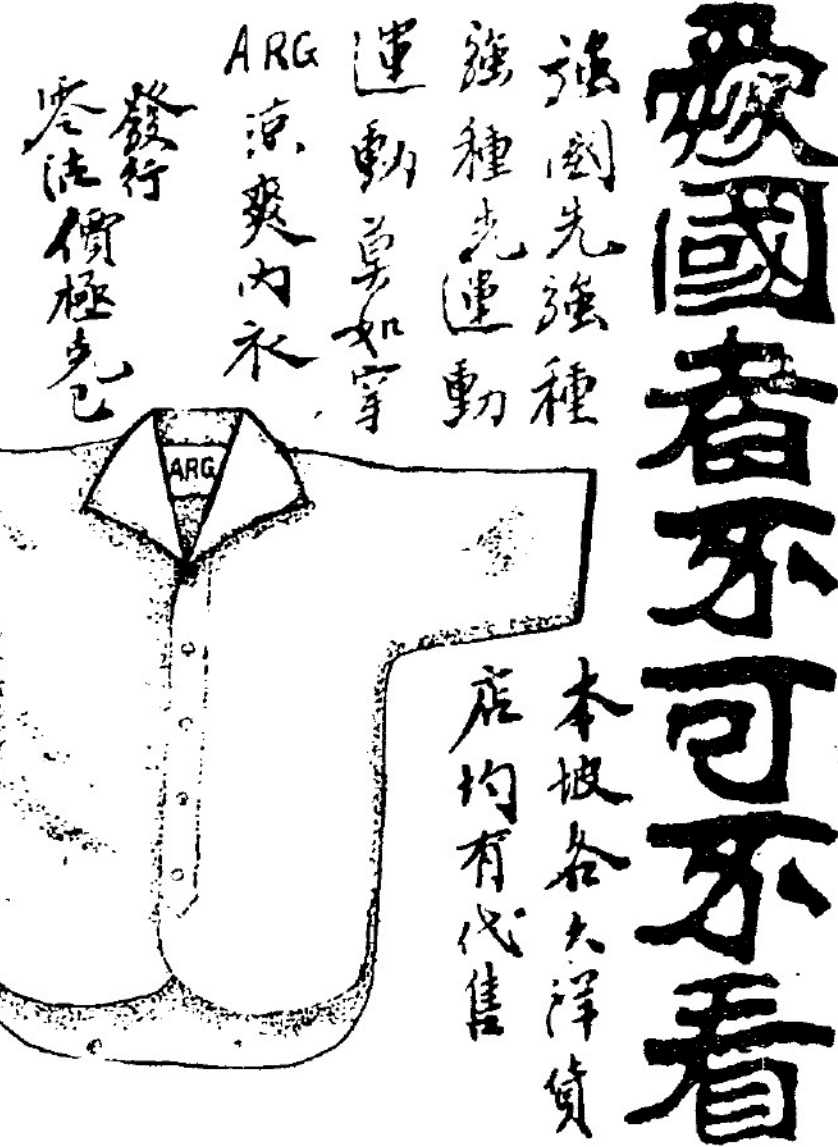 愛國者不可不看
強國先強種
強種先運動
運動莫如穿
ARG涼爽內衣
發行
零沽價極克己
ARG
本坡各大洋貨
店均有代售